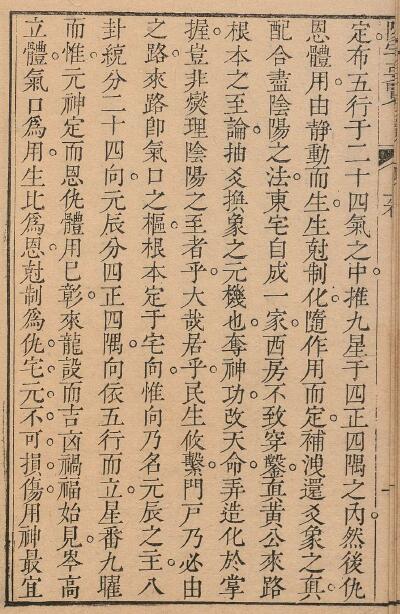 定布五行于二十四氣之中。推九星于四正四隅之內。然後仇
恩體用。由靜動而生。生尅制化。隨作用而定。補洩還爻象之眞
配合盡陰陽之法。東宅自成一家。西房不致穿鑿。直黃公來路
根本之至論。抽爻換象之元機也。奪神功改天命。弄造化於掌
握。豈非爕理陰陽之至者乎。大哉居乎。民生攸繫。門戸乃必由
之路。來路卽氣口之樞。根本定于宅向。惟向乃名元辰之主。八
卦統分二十四向。元辰分四正四隅。向依五行而立。星番九曜
而惟元神定。而恩仇體用已彰。來龍設而吉凶禍福始見。岑高
立體。氣口爲用。生比爲恩。尅制爲仇。宅元不可損傷。用神最宜